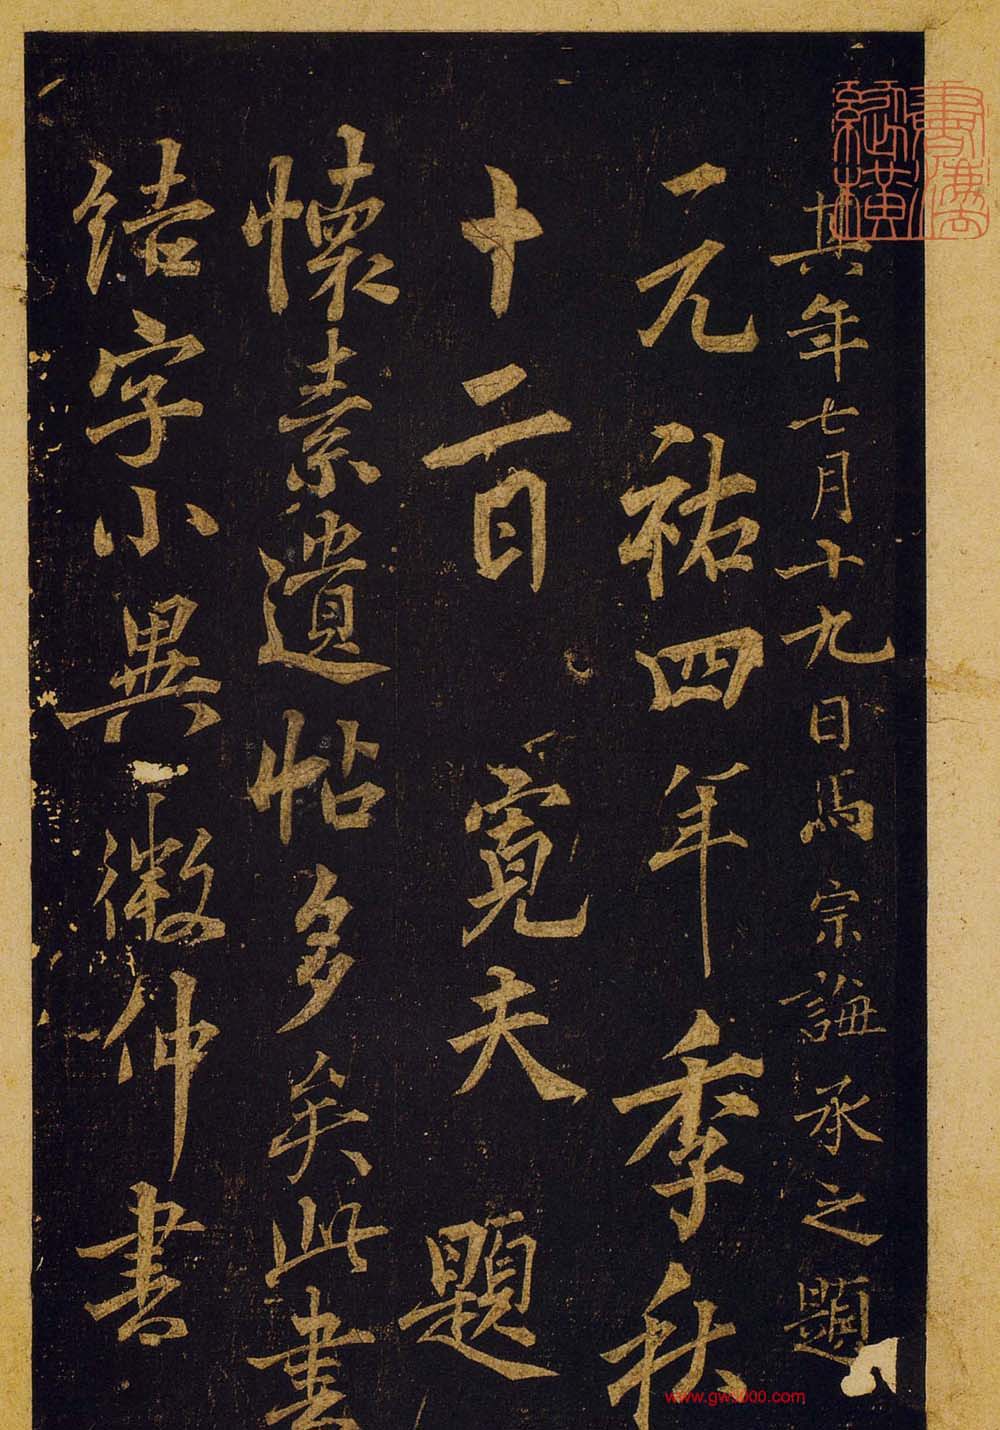 其年七月十九日馬宗誨承之題
元祐四年季秋
十二日 寬夫題
懷素遺帖多矣此書
結字小異 微仲書
www.gw1000.com